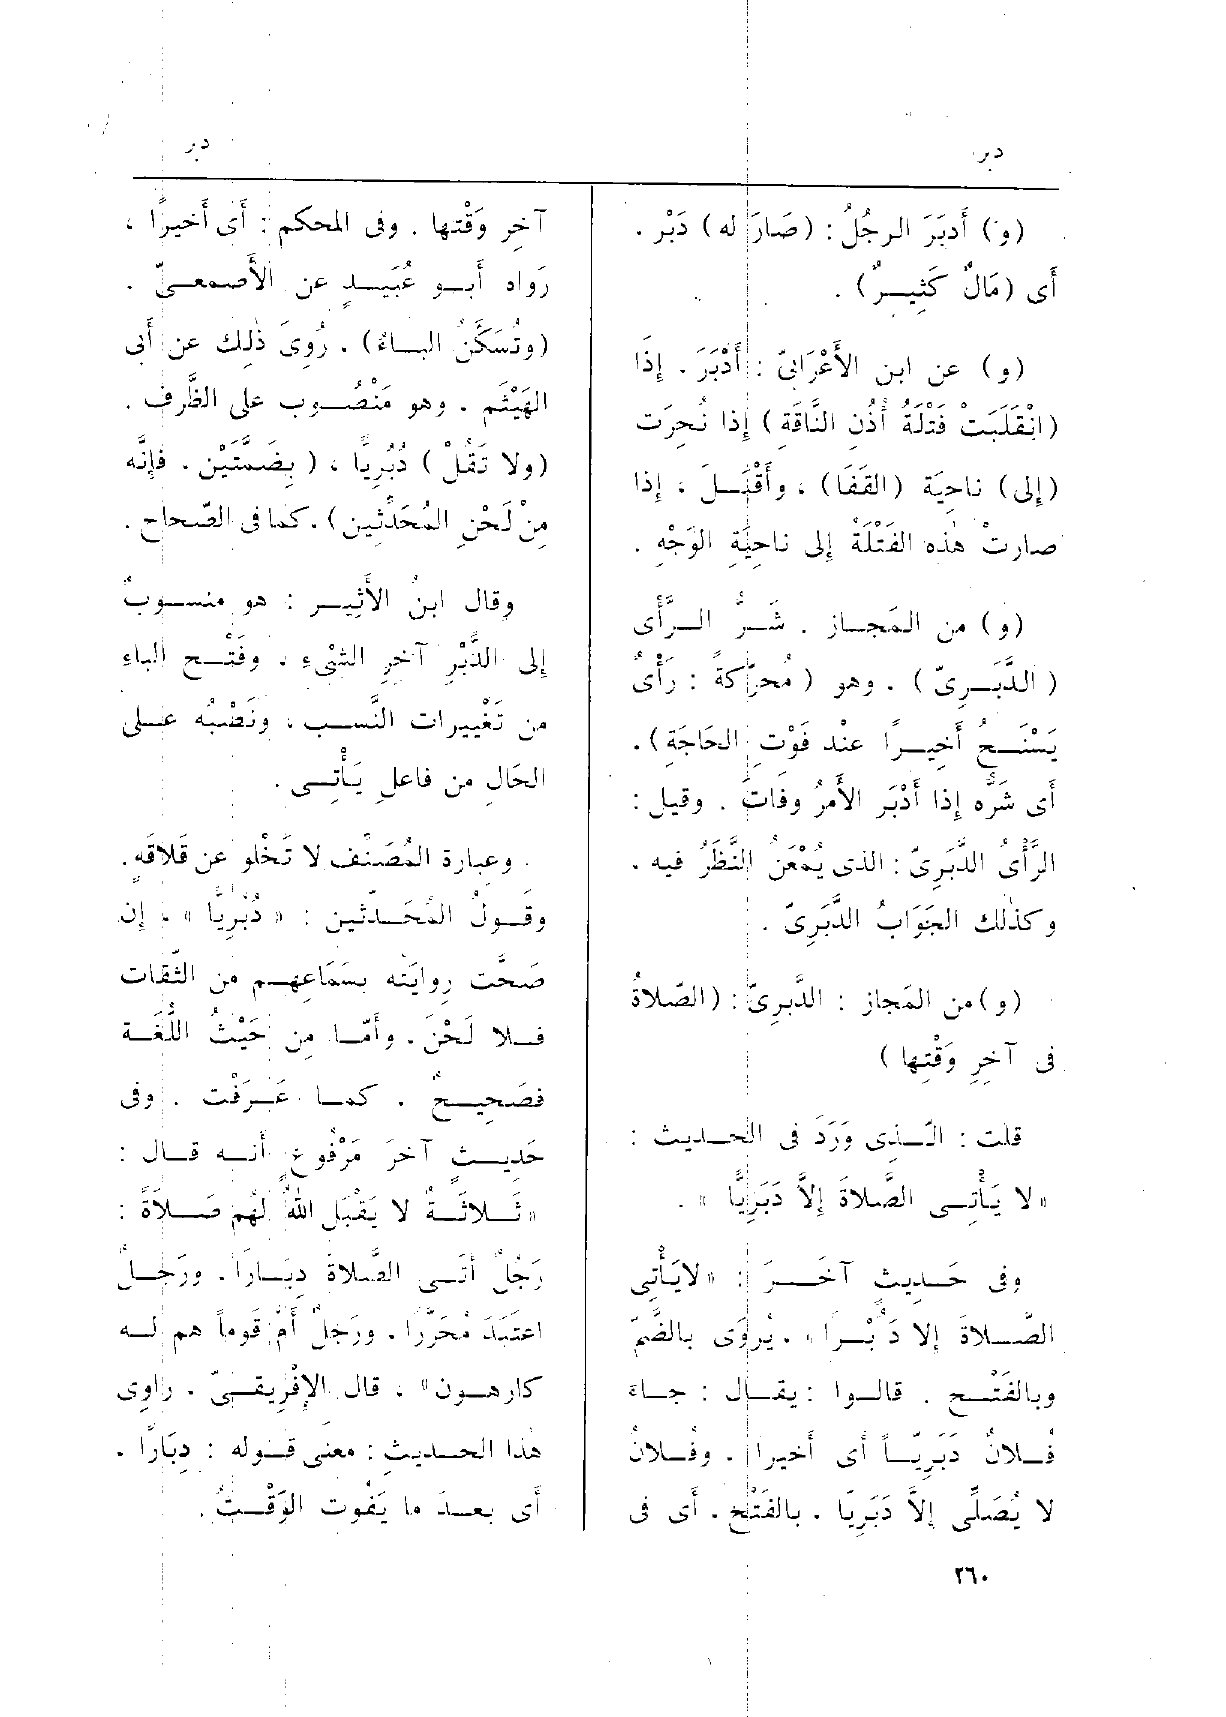 دبر
دبر
(و) أَدبَرَ الرجُلُ : (صَارَ له) دَبْر .
أى (مَالٌ كَثِيرٌ) .
(و) عن ابن الأَعْرَابىّ : أَدْبَرَ . إِذَا
(انْقَلَبَتْ فَتْلَةُ أُذُنِ النَّاقَةِ) إذا نُحِرَت
(إلى) ناحِيَة (القَفَا) ، وأَقْبَلَ ، إذا
صارتْ هٰذه الفَتْلَةُ إلى ناحِيَةِ الوَجْهِ .
(و) من المَجاز . شَرُّ الرَّأْى
(الدَّبَرِىّ) . وهو (مُحرَّكةً : رَأْىٌ
يَسْنَحُ أَخِيرًا عند فَوْتِ الحَاجَةِ) .
أى شَرُّه إذا أَدْبَر الأَمرُ وفَاتَ . وقيل :
الرَّأْىُ الدَّبَرِىّ : الذى يُمْعَنُ النَّظَرُ فيه .
وكذٰلك الجَوَابُ الدَّبَرِىّ .
(و) من المَجاز : الدَّبَرِىّ : (الصَّلاةُ
فى آخِرِ وَقْتِها )
قلت : الَّذى وَرَدَ فى الحديث :
« لا يَأْتِى الصَّلاةَ إِلاَّ دَبَرِيًّا » .
وفى حَديث آخَرَ : « لايَأْتِى
الصَّلاةَ إلا دَ بْرا » . يُروَى بالضَّمّ
وبالفَتْح . قالوا : يقال : جاءَ
فلانٌ دَبَرِيّاً أى أَخيرا . وفُلانٌ
لا يُصَلِّى إلاَّ دَبَرِيّا . بالفَتْح . أى فى
آخِرِ وَقْتِها . وفى المحكم : أى أَخيرًا ،
رَواه أَبو عُبَيدٍ عن الأَصمعىّ .
(وتُسَكَّنُ الباءُ) . رُوِىَ ذٰلِك عن أَبى
الهَيْثَم . وهو مَنْصُوب على الظَّرف .
(ولا تَقُلْ) دُبُرِيًّا ، (بِضَمَّتَيْنِ . فإِنَّه
مِنْ لَحْنِ المُحَدِّثين) . كما فى الصّحاح .
وقال ابنُ الأَثِير : هو منسوبٌ
إلى الدَّبْرِ آخرِ الشْىء ، وفَتْح الباء
من تَغْيِيرات النَّسب ، ونَصْبُه على
الحَالِ من فاعلِ يَأْتِى .
وعبارة المُصَنّف لا تَخْلو عن قَلاقَةٍ .
وقَولُ المُحَدّثين : « دُبُرِيًّا » ، إن
صَحَّت رِوايَته بسَمَاعِهم من الثِّقات
فلا لَحْنَ . وأَمّا من حَيْثُ اللُّغَة
فصَحِيحٌ . كما عَرَفْت . وفى
حَديثٍ آخرَ مَرْفُوعٍ أنه قال :
« ثَلاثَةٌ لا يَقْبَل اللهُ لهُم صَلاَةً :
رَجُلٌ أَتَى الصَّلاةَ دِبَارًا . ورَجلٌ
اعتَبَدَ مُحَرَّرا . ورَجلٌ أَمَّ قوماً هم له
كارهون » ، قال الإِفْرِيقىّ . راوِى
هٰذا الحديث : معنى قوله : دِبَارًا .
أى بعدَ ما يَفُوت الوَقْتُ .
٢٦٠